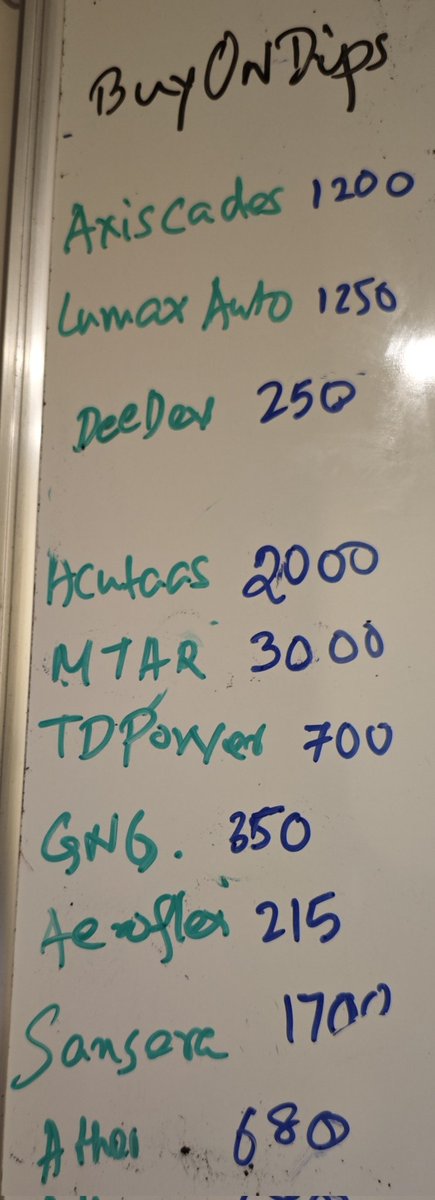 Buy On Dips
Axiscades 1200
Lumax Auto 1250
DeeDev 250
Acutaas 2000
MTAR 3000
TDPower 700
GNG. 350
Aeroflex 215
Sansera 1700
Ather 680